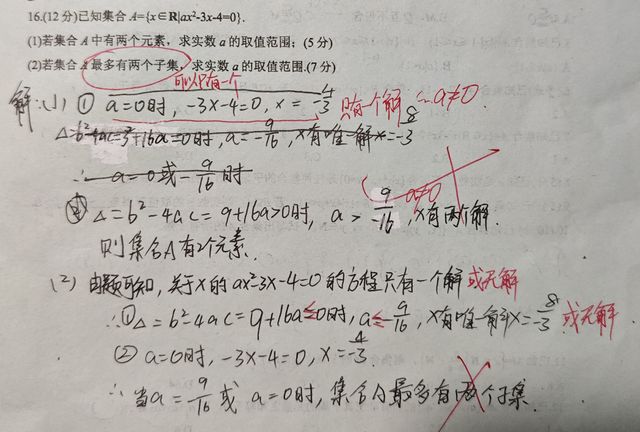 16.(12分)已知集合 A={x∈R|ax²-3x-4=0}.
(1)若集合 A 中有两个元素，求实数 a 的取值范围；(5分)
(2)若集合 A 最多有两个子集，求实数 a 的取值范围.(7分)
可以只有一个
解:(1) ① a=0时, -3x-4=0, x=-4/3 只有一个解 ∴a≠0.
Δ=b²-4ac=3²+16a=0时, a=-9/16, x有唯一解x=-8/3
∴ a=0或-9/16时
② Δ=b²-4ac=9+16a>0时, a>-9/16, x有两个解. a≠0
则集合A有2个元素.
(2) 由题可知, 关于x的ax²-3x-4=0的方程只有一个解 或无解
∴①Δ=b²-4ac=9+16a≤0时, a≤-9/16, x有唯一解x=-8/3 或无解.
② a=0时, -3x-4=0, x=-4/3.
∴当a=9/16或 a=0时, 集合A最多有两个子集.